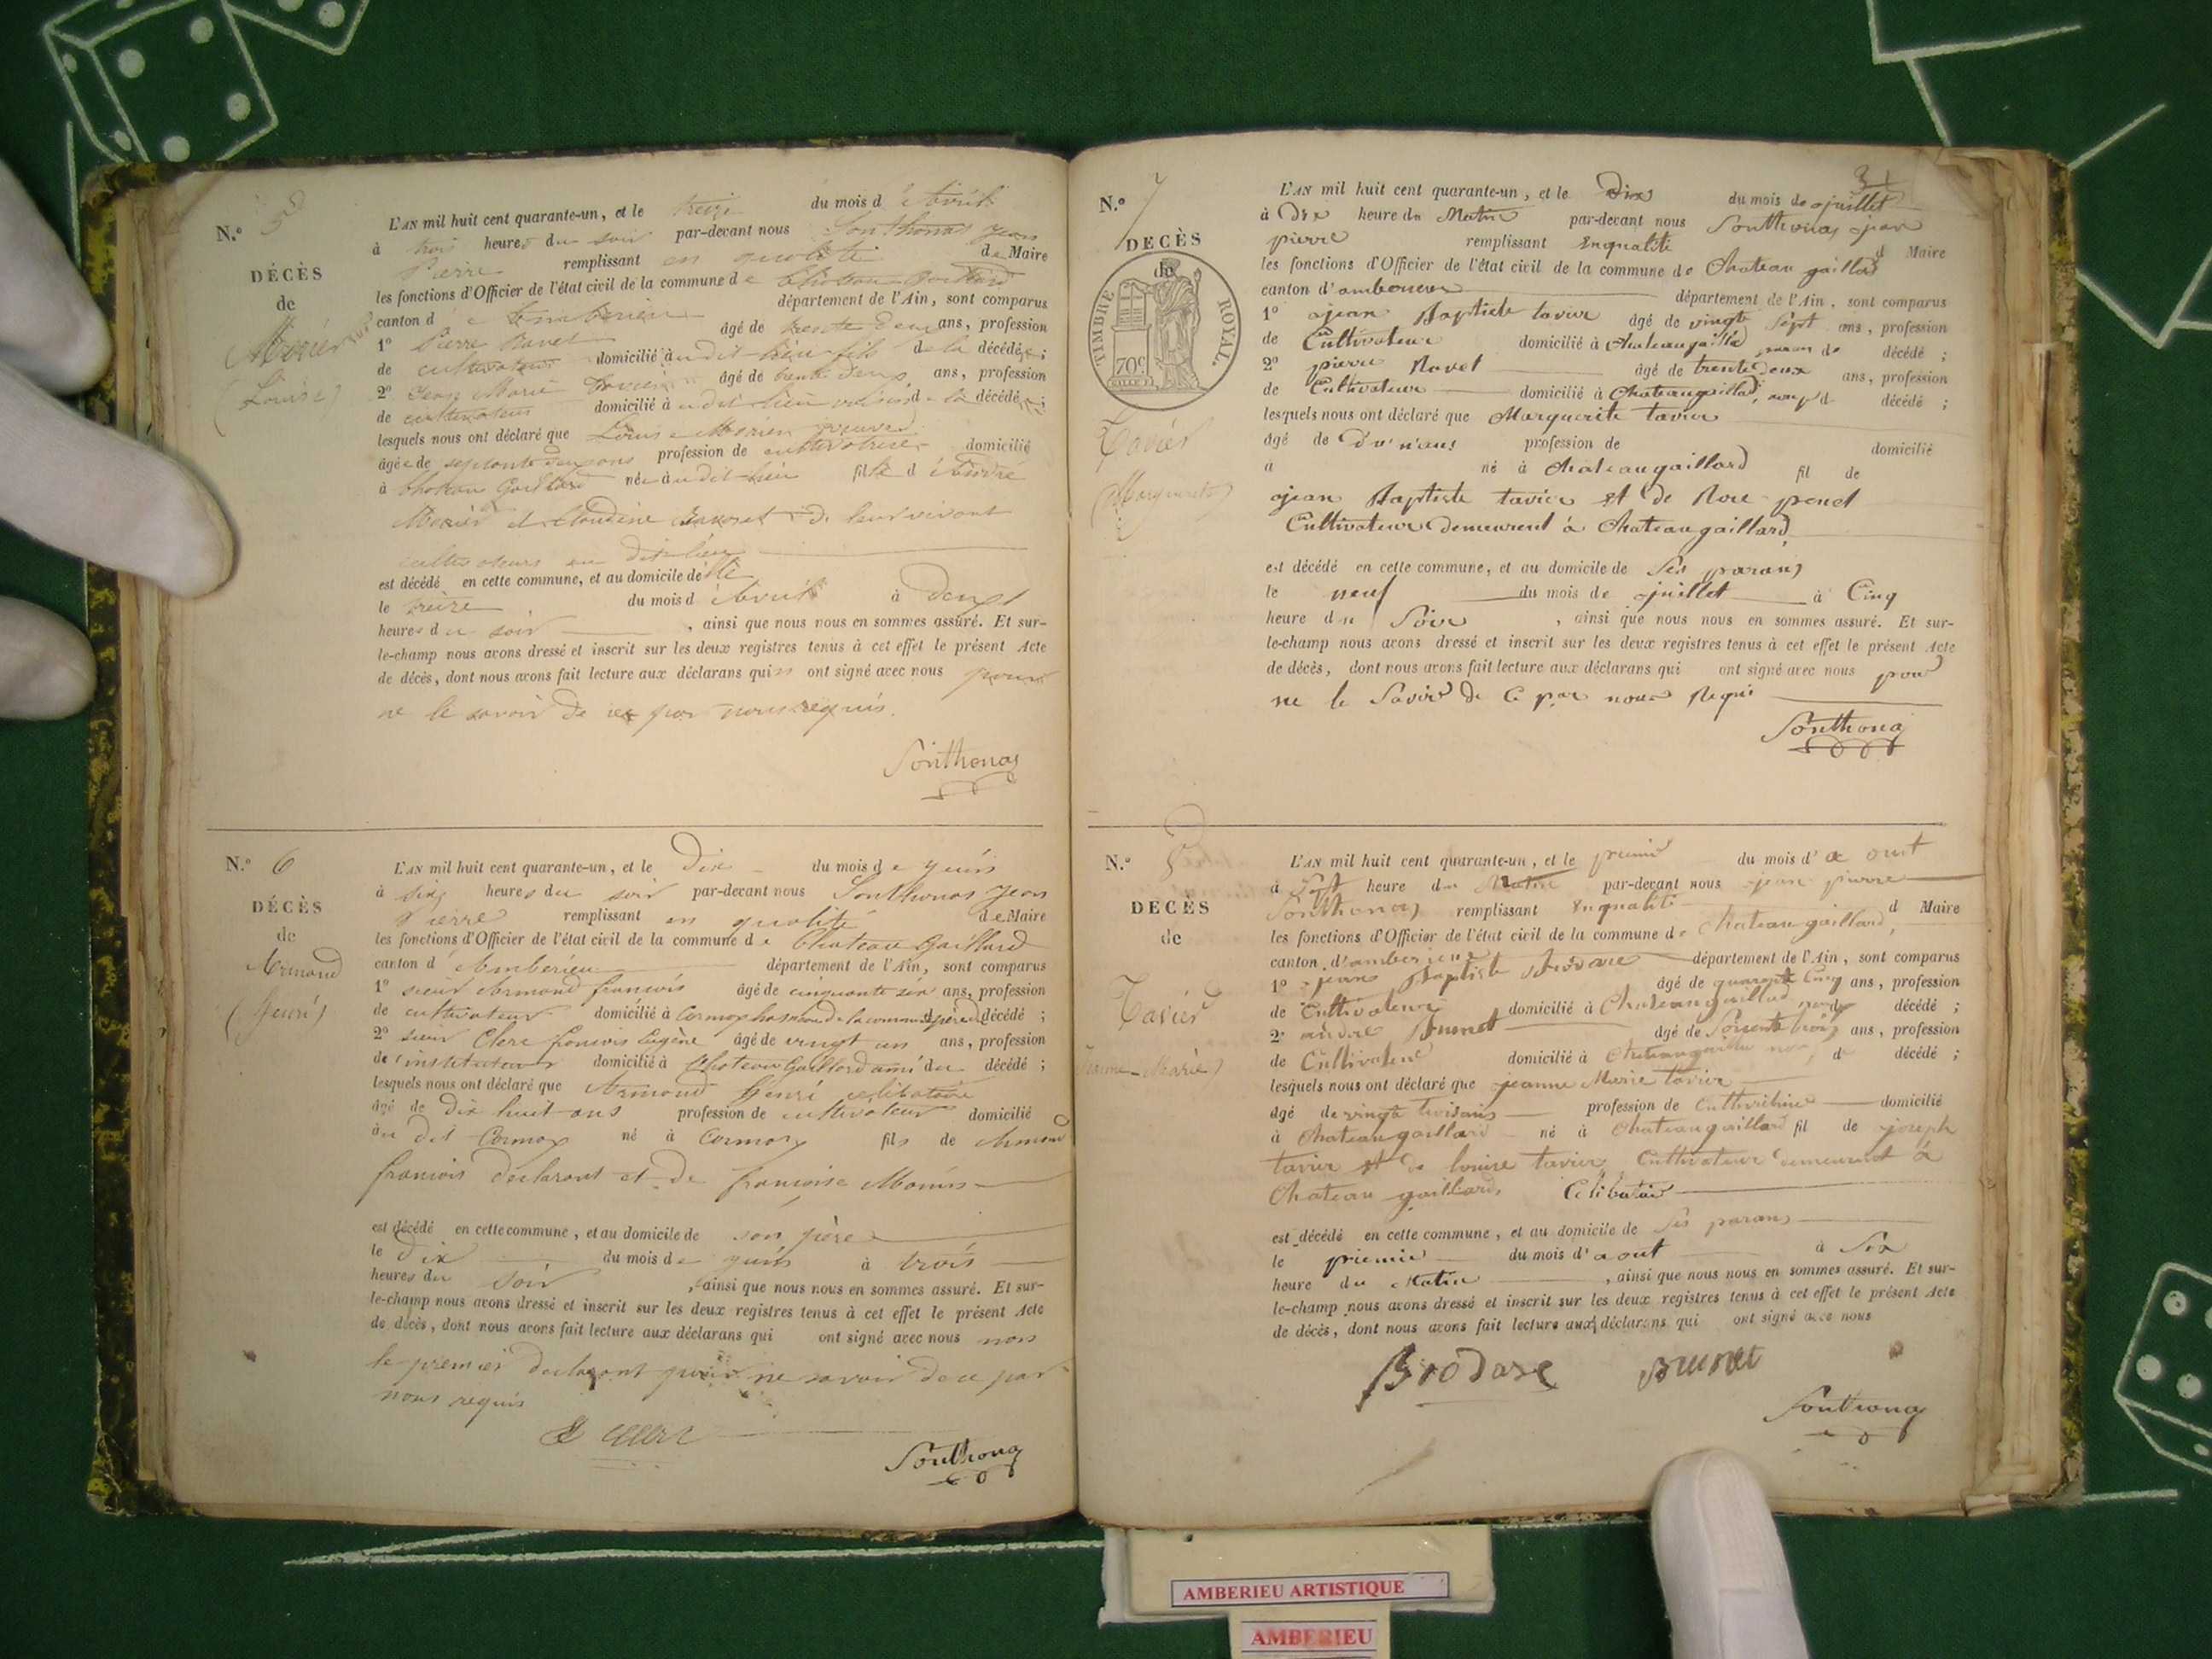 N.º 5
DÉCÈS
de
Louise)
L'AN mil huit cent quarante-un, et le treize du mois d'Avril
à trois heures du soir par-devant nous Sonthonas Jean
Pierre remplissant en qualité de Maire
les fonctions d'Officier de l'état civil de la commune de Chateau Gaillard
canton d département de l'Ain, sont comparus
1º Pierre Ravet âgé de trente deux ans, profession
de cultivateur domicilié audit lieu fils de la décédée ;
2º Jean Marie âgé de trente deux ans, profession
de cultivateur domicilié audit lieu voisin de la décédée ;
lesquels nous ont déclaré que Louise
âgée de septante deux ans profession de cultivatrice domicilié
à Chateau Gaillard née audit lieu fille d'André
et Claudine de leur vivant
cultivateurs au dit lieu
est décédé en cette commune, et au domicile de
le treize du mois d'Avril à deux
heures du soir , ainsi que nous nous en sommes assuré. Et sur-
le-champ nous avons dressé et inscrit sur les deux registres tenus à cet effet le présent Acte
de décès, dont nous avons fait lecture aux déclarans qui n ont signé avec nous pour
ne le savoir de ce par nous requis.
Sonthonas
N.º 6
DÉCÈS
de
Armand
(henri)
L'AN mil huit cent quarante-un, et le Dix du mois de juin
à six heures du soir par-devant nous Sonthonas Jean
Pierre remplissant en qualité de Maire
les fonctions d'Officier de l'état civil de la commune de Chateau Gaillard
canton d'Amberieu département de l'Ain, sont comparus
1º sieur Armand francois âgé de cinquante six ans, profession
de cultivateur domicilié à Cormoz hameau de la commune père du décédé ;
2º sieur Clerc francois Eugène âgé de vingt un ans, profession
de l'instituteur domicilié à Chateau Gaillard ami du décédé ;
lesquels nous ont déclaré que Armand henri celibataire
âgé de dix huit ans profession de cultivateur domicilié
au dit Cormoz né à Cormoz fils de Armand
francois déclarant et de francoise
est décédé en cette commune, et au domicile de son père
le Dix du mois de juin à trois
heures du soir , ainsi que nous nous en sommes assuré. Et sur-
le-champ nous avons dressé et inscrit sur les deux registres tenus à cet effet le présent Acte
de décès, dont nous avons fait lecture aux déclarans qui ont signé avec nous non
le premier declarant pour ne savoir de ce par
nous requis
Clerc
Sonthonas
31
N.º 7
DÉCÈS
de
TIMBRE ROYAL.
70c
Tavier
Marguerite)
L'AN mil huit cent quarante-un, et le Dix du mois de juillet
à Dix heure du Matin par-devant nous Sonthonas jean
pierre remplissant enqualité d Maire
les fonctions d'Officier de l'état civil de la commune de Chateau gaillard
canton d' département de l'Ain, sont comparus
1º jean Baptiste tavier âgé de vingt sept ans, profession
de Cultivateur domicilié à Chateaugaillard décédé ;
2º pierre Ravet âgé de trente deux ans, profession
de Cultivateur domicilié à Chateaugaillard, décédé ;
lesquels nous ont déclaré que Marguerite tavier
âgé de profession de domicilié
à né à Chateaugaillard fil de
jean Baptiste tavier et de Rose penet
Cultivateur demeurent à Chateaugaillard,
est décédé en cette commune, et au domicile de ses parans
le neuf du mois de juillet à Cinq
heure du soir , ainsi que nous nous en sommes assuré. Et sur-
le-champ nous avons dressé et inscrit sur les deux registres tenus à cet effet le présent Acte
de décès, dont nous avons fait lecture aux déclarans qui ont signé avec nous pour
ne le savoir de ce par nous Requis
Sonthonas
N.º 8
DÉCÈS
de
Tavier
Jeanne-Marie)
L'AN mil huit cent quarante-un, et le premier du mois d'aout
à sept heure du Matin par-devant nous jean pierre
Sonthonas remplissant enqualité d Maire
les fonctions d'Officier de l'état civil de la commune de Chateau gaillard,
canton d'amberieux département de l'Ain, sont comparus
1º jean Baptiste Brodare âgé de quarante Cinq ans, profession
de Cultivateur domicilié à Chateaugaillard décédé ;
2º andre Brunet âgé de soisente trois ans, profession
de Cultivateur domicilié à Chateaugaillard décédé ;
lesquels nous ont déclaré que jeanne Marie tavier
âgé de vingt trois ans profession de Cultivatrice domicilié
à Chateaugaillard né à Chateaugaillard fil de joseph
tavier et de louise tavier Cultivateur demeurent à
Chateau gaillard, Celibataire
est décédé en cette commune, et au domicile de ses parans
le premier du mois d'aout à six
heure du Matin , ainsi que nous nous en sommes assuré. Et sur-
le-champ nous avons dressé et inscrit sur les deux registres tenus à cet effet le présent Acte
de décès, dont nous avons fait lecture aux déclarans qui ont signé avec nous
Brodare Brunet
Sonthonas
AMBERIEU ARTISTIQUE
AMBERIEU